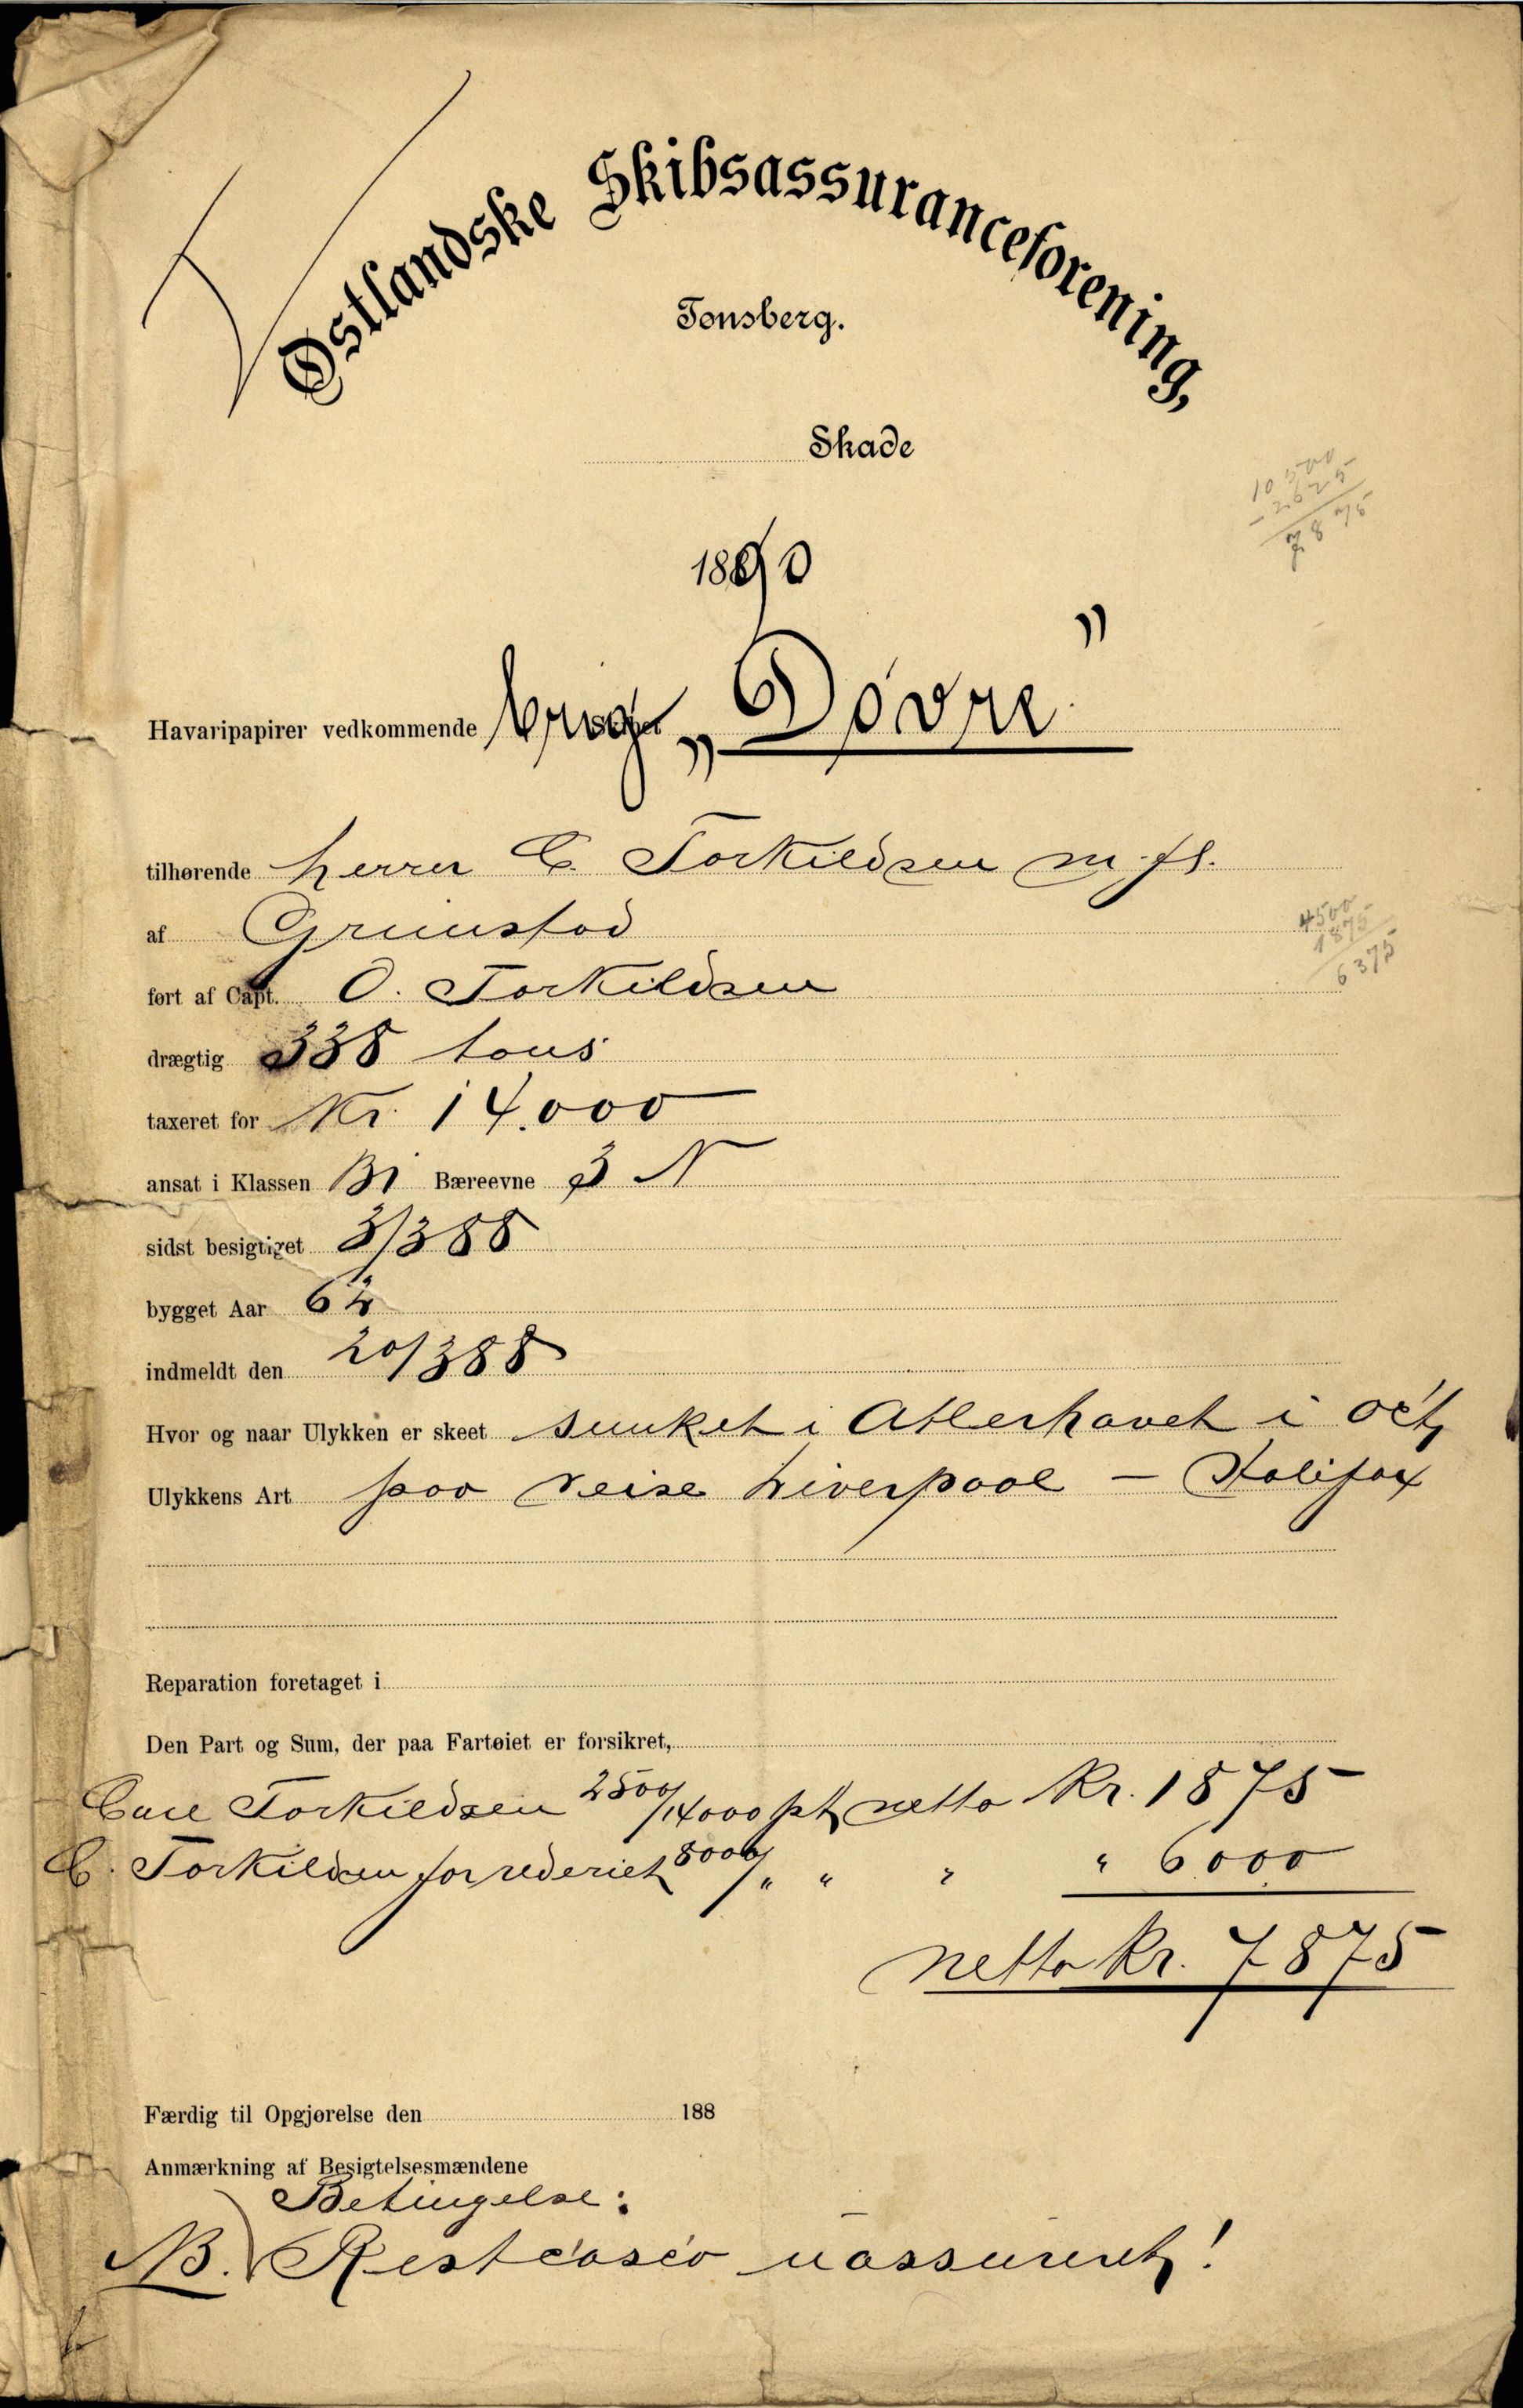 Østlandske Skibsassuranceforening,
Tønsberg.
Skade
10500
- 2625
7875
1890
Havaripapirer vedkommende brig „Dovre"
tilhørende herrer C. Torkildsen m. fl.
af Grimstad
4500
1875
6375
ført af Capt. O. Torkildsen
drægtig 338 tons
taxeret for Kr. 14.000
ansat i Klassen B1 Bæreevne 3 N
sidst besigtiget 3/3 88
bygget Aar
indmeldt den 20/3 88
Hvor og naar Ulykken er skeet sunket i Atlerhavet i Oct,
Ulykkens Art paa reise Liverpool – Halifax
Reparation foretaget i
Den Part og Sum, der paa Fartøiet er forsikret,
Carl Torkildsen 2500/14000 pt netto Kr. 1875
C. Torkildsen for rederiet 8000/" " " " 6000
netto Kr. 7875
Færdig til Opgjørelse den 188
Anmærkning af Besigtelsesmændene
Betingelse:
NB. Restcasco uassureret!